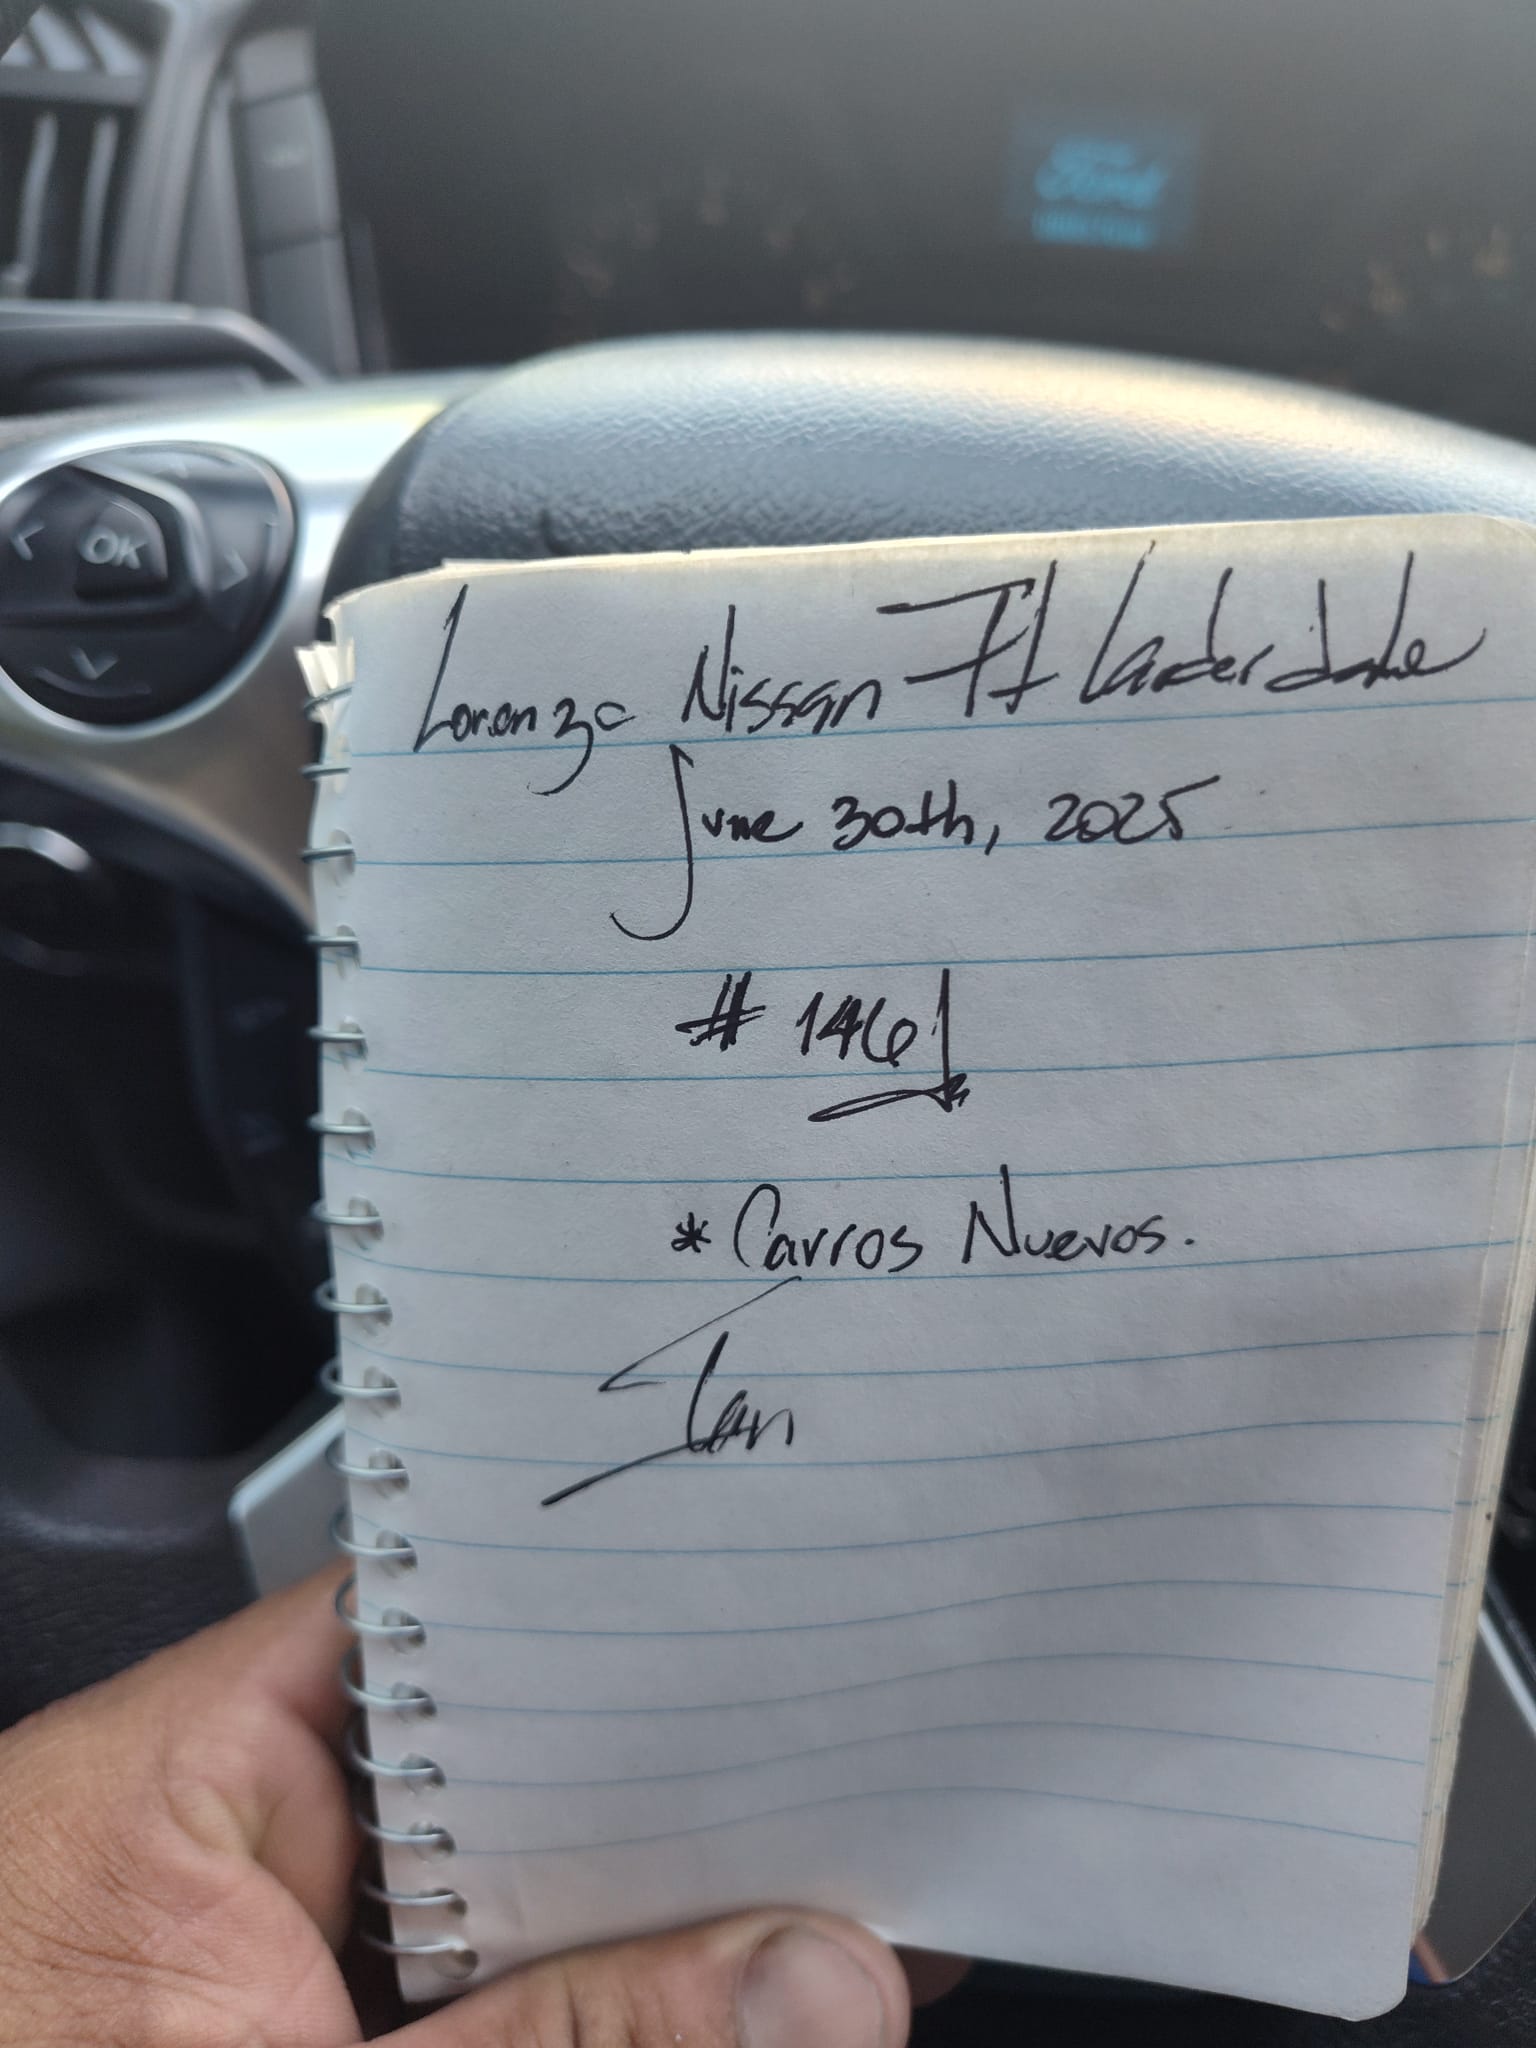 Ford
OK
Lorenzo Nissan Ft Lauderdale
June 30th, 2025
# 1461
* Carros Nuevos.